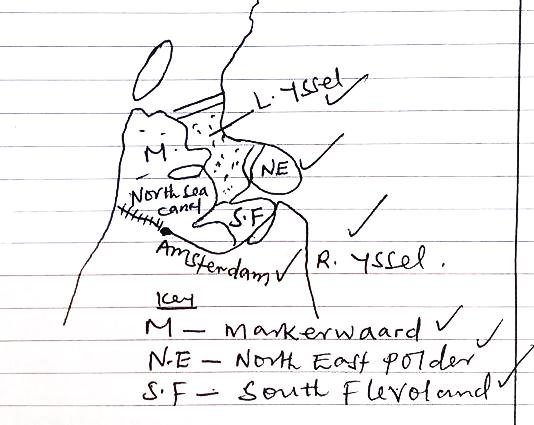 L. Yssel
M
NE
North Sea
canal
S.F
Amsterdam
R. Yssel.
Key
M – Markerwaard
N.E – North East polder
S.F – South Flevoland